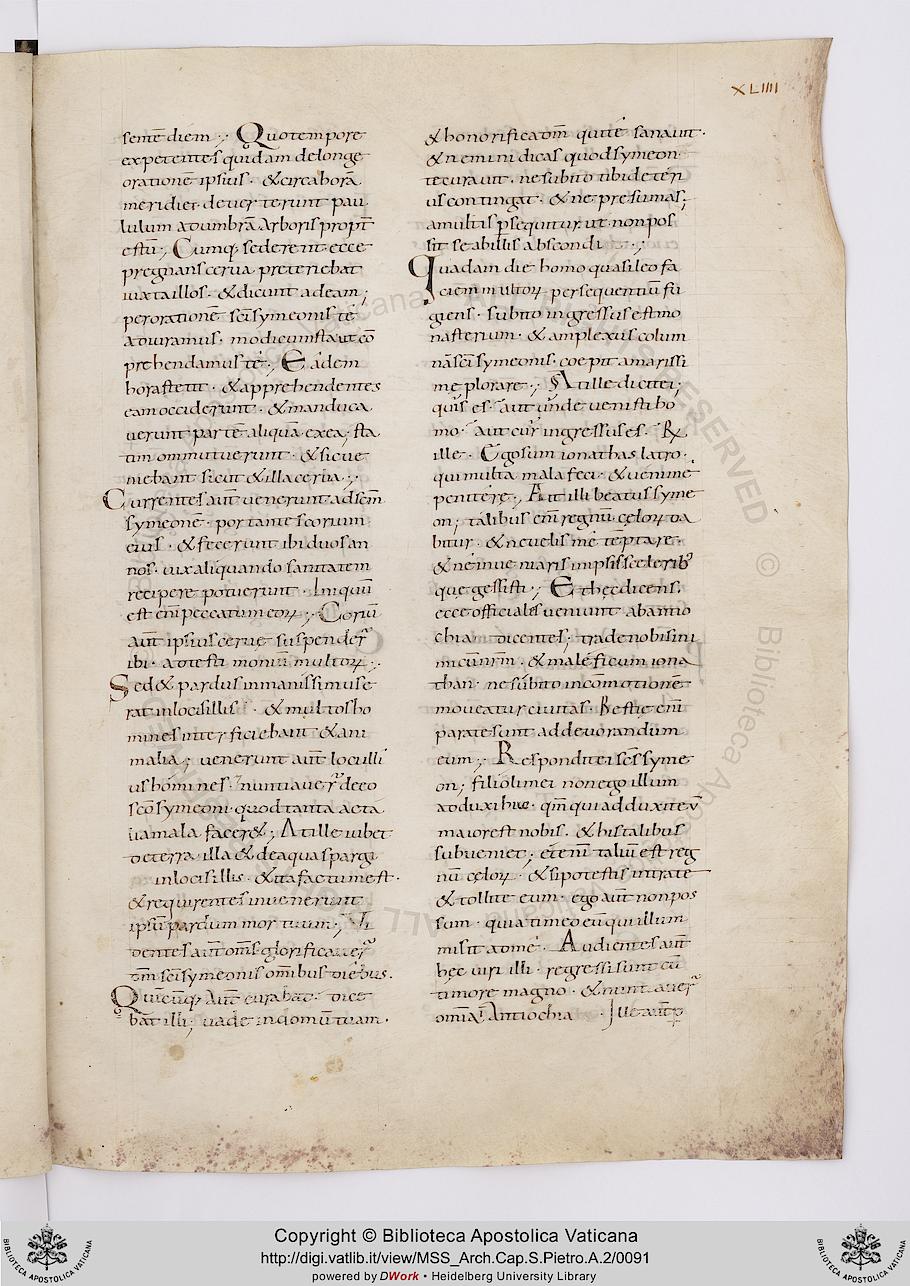 XLIIII
sentē diem ·; Quo tempore
expetentes quidam delonge
orationē ipsius · & circa horā
meridiei deuerterunt pau
lulum ad umbrā arboris propt̄
estū ·; Cumq; sederent ecce
pregnans cerua preteriebat
iuxta illos · & dicunt ad eam ;
per orationē sc̄i symeonis te
adiuramus · modicum sta ut cō
prehendamus te ·; Eadem
hora stetit · & apprehendentes
eam occiderunt · & manduca
uerunt partē aliquā ex ea · sta
tim ommutuerunt · & sicue
niebant sicut & illa cerua ·;
Currentes aūt uenerunt ad sc̄m
symeonē · portantes corium
eius · & fecerunt ibi duos an
nos · uix aliquando sanitatem
recipere potuerunt · Iniquū
est enī peccatum eorꝝ ·; Coriū
aūt ipsius cerue suspender̄
ibi · ad testimonium multorꝝ ·;
Sed & pardus inmanissimus e
rat in locis illis · & multos ho
mines interficiebant & ani
malia ; uenerunt aūt loci illi
us homines · nuntiauer̄ deo
sc̄o symeoni · quod tanta acta
ua mala facer& ; At ille iub&
de terra illa & de aqua spargi
in locis illis · & ita factum est ·
& requirentes inuenerunt
ipsū pardum mortuum · Vi
dentes aūt om̄s glorificauer̄
dm̄ sc̄i symeonis om̄ibus diebus ·
Quēcūq; aūt curabat · dice
bat illi ; uade in domū tuam ·
& honorifica dm̄ qui te sanauit ·
& nemini dicas quod symeon
te curauit · ne subito tibi deteri
us contingat · & ne presumas ;
a multis p̄sequitur ut non pos
sit se ab illis abscondi ·;
Quadam die homo quasi leo fa
ciem multorꝝ persequentiū fu
giens · subito ingressus est mo
nasterium · & amplexus colum
nā sc̄i symeonis · coepit amarissi
me plorare ·; At ille dic ei ;
quis es · aut unde uenisti ho
mo · aut cur ingressus es · R̄
ille · Ego sum ionathas latro ·
qui multa mala feci · & ueni me
penitere ·; Ait illi beatus syme
on ; talibus enī regnū celorꝝ da
bitur · & ne uelis me tēptare ·
& ne inueniaris in ipsis sceleribꝰ
que gessisti ·; Et hec dicens ·
ecce officiales ueniunt ab antio
chia dicentes ; trade nobis ini
micum nr̄m · & maleficum iona
than · ne subito in cōmotionē
moueatur ciuitas · Bestie enī
parate sunt ad deuorandum
eum ·; Respondit ei sc̄s syme
on ; filioli mei non ego illum
adduxi huc · qm̄ qui adduxit eū
maior est nobis · & his talibus
subueniet ; etenī taliū est reg
nū celorꝝ · & si potestis intrate
& tollite eum · ego aūt non pos
sum · quia timeo eū qui illum
misit ad me · Audientes aūt
hęc uiri illi · regressi sunt cū
timore magno · & nuntiauer̄
omīa Antiochia · Ille aūt p̄
Copyright © Biblioteca Apostolica Vaticana
http://digi.vatlib.it/view/MSS_Arch.Cap.S.Pietro.A.2/0091
powered by DWork • Heidelberg University Library